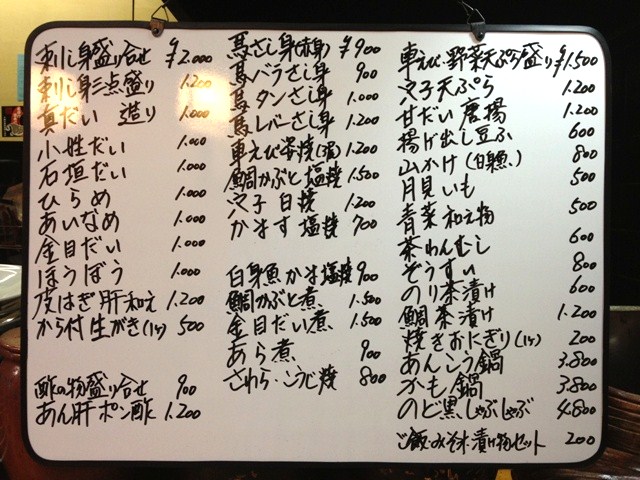 刺し身盛り合せ ¥2.000
刺し身三点盛り 1.200
真だい 造り 1.000
小性だい 1.000
石垣だい 1.000
ひらめ 1.000
あいなめ 1.000
金目だい 1.000
ほうぼう 1.000
皮はぎ肝和え 1.200
から付生がき(1ケ) 500
酢の物盛り合せ 900
あん肝ポン酢 1.200
馬さし身(赤身) ¥900
馬バラさし身 900
馬タンさし身 1.000
馬レバーさし身 1.200
車えび塩焼(2尾) 1.200
鯛かぶと塩焼 1.500
穴子白焼 1.200
かます塩焼 700
白身魚かま塩焼 900
鯛かぶと煮 1.500
金目だい煮 1.500
あら煮 900
さわら・こうじ焼 800
車えび・野菜天ぷら盛り ¥1.500
穴子天ぷら 1.200
甘だい唐揚 1.200
揚げ出し豆ふ 600
山かけ(白身魚) 800
月見いも 500
青菜和え物 500
茶わんむし 600
ぞうすい 800
のり茶漬け 600
鯛茶漬け 1.200
焼きおにぎり(1ケ) 200
あんこう鍋 3.800
かも鍋 3.800
のど黒しゃぶしゃぶ 4.800
ご飯・みそ汁・漬け物セット 200